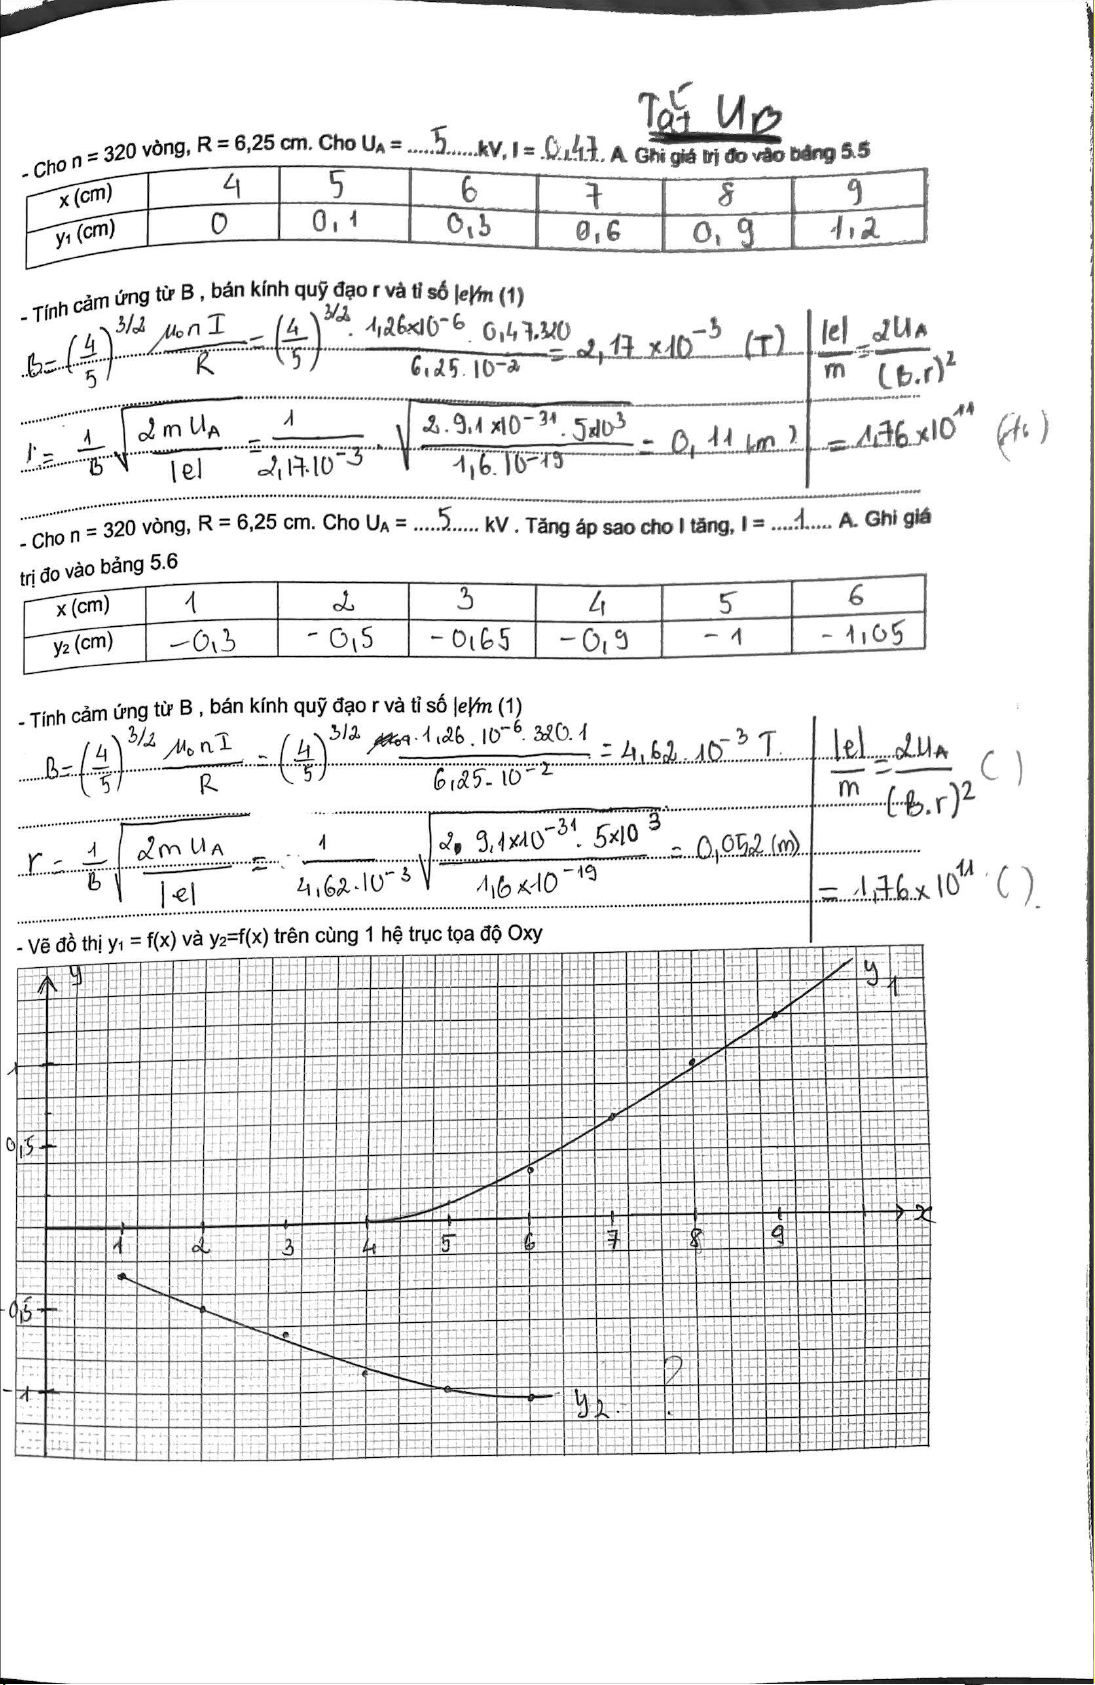 Tắt U_B
- Cho n = 320 vòng, R = 6,25 cm. Cho U_A = .....5......kV, I = .0,47. A. Ghi giá trị đo vào bảng 5.5
x (cm) 4 5 6 7 8 9
y₁ (cm) 0 0,1 0,3 0,6 0,9 1,2
- Tính cảm ứng từ B , bán kính quỹ đạo r và tỉ số |e|/m (1)
B = (4/5)^3/2 μ₀nI/R = (4/5)^3/2 . 1,26×10⁻⁶ . 0,47.320 / 6,25.10⁻² = 2,17 ×10⁻³ (T)
|e|/m = 2U_A/(B.r)²
r = 1/B √(2mU_A/|e|) = 1/2,17.10⁻³ . √(2.9,1×10⁻³¹ . 5×10³ / 1,6.10⁻¹⁹) = 0,11 (m)
= 1,76×10¹¹
- Cho n = 320 vòng, R = 6,25 cm. Cho U_A = .....5..... kV . Tăng áp sao cho I tăng, I = .....1..... A. Ghi giá
trị đo vào bảng 5.6
x (cm) 1 2 3 4 5 6
y₂ (cm) -0,3 -0,5 -0,65 -0,9 -1 -1,05
- Tính cảm ứng từ B , bán kính quỹ đạo r và tỉ số |e|/m (1)
B = (4/5)^3/2 μ₀nI/R = (4/5)^3/2 . 1,26.10⁻⁶.320.1 / 6,25.10⁻² = 4,62.10⁻³ T.
|e|/m = 2U_A/(B.r)² ( )
r = 1/B √(2mU_A/|e|) = 1/4,62.10⁻³ √(2.9,1×10⁻³¹ . 5×10³ / 1,6×10⁻¹⁹) = 0,052 (m)
= 1,76×10¹¹ ( ).
- Vẽ đồ thị y₁ = f(x) và y₂=f(x) trên cùng 1 hệ trục tọa độ Oxy
y
y₁
1
0,5
x
1 2 3 4 5 6 7 8 9
-0,5
-1
y₂. ?